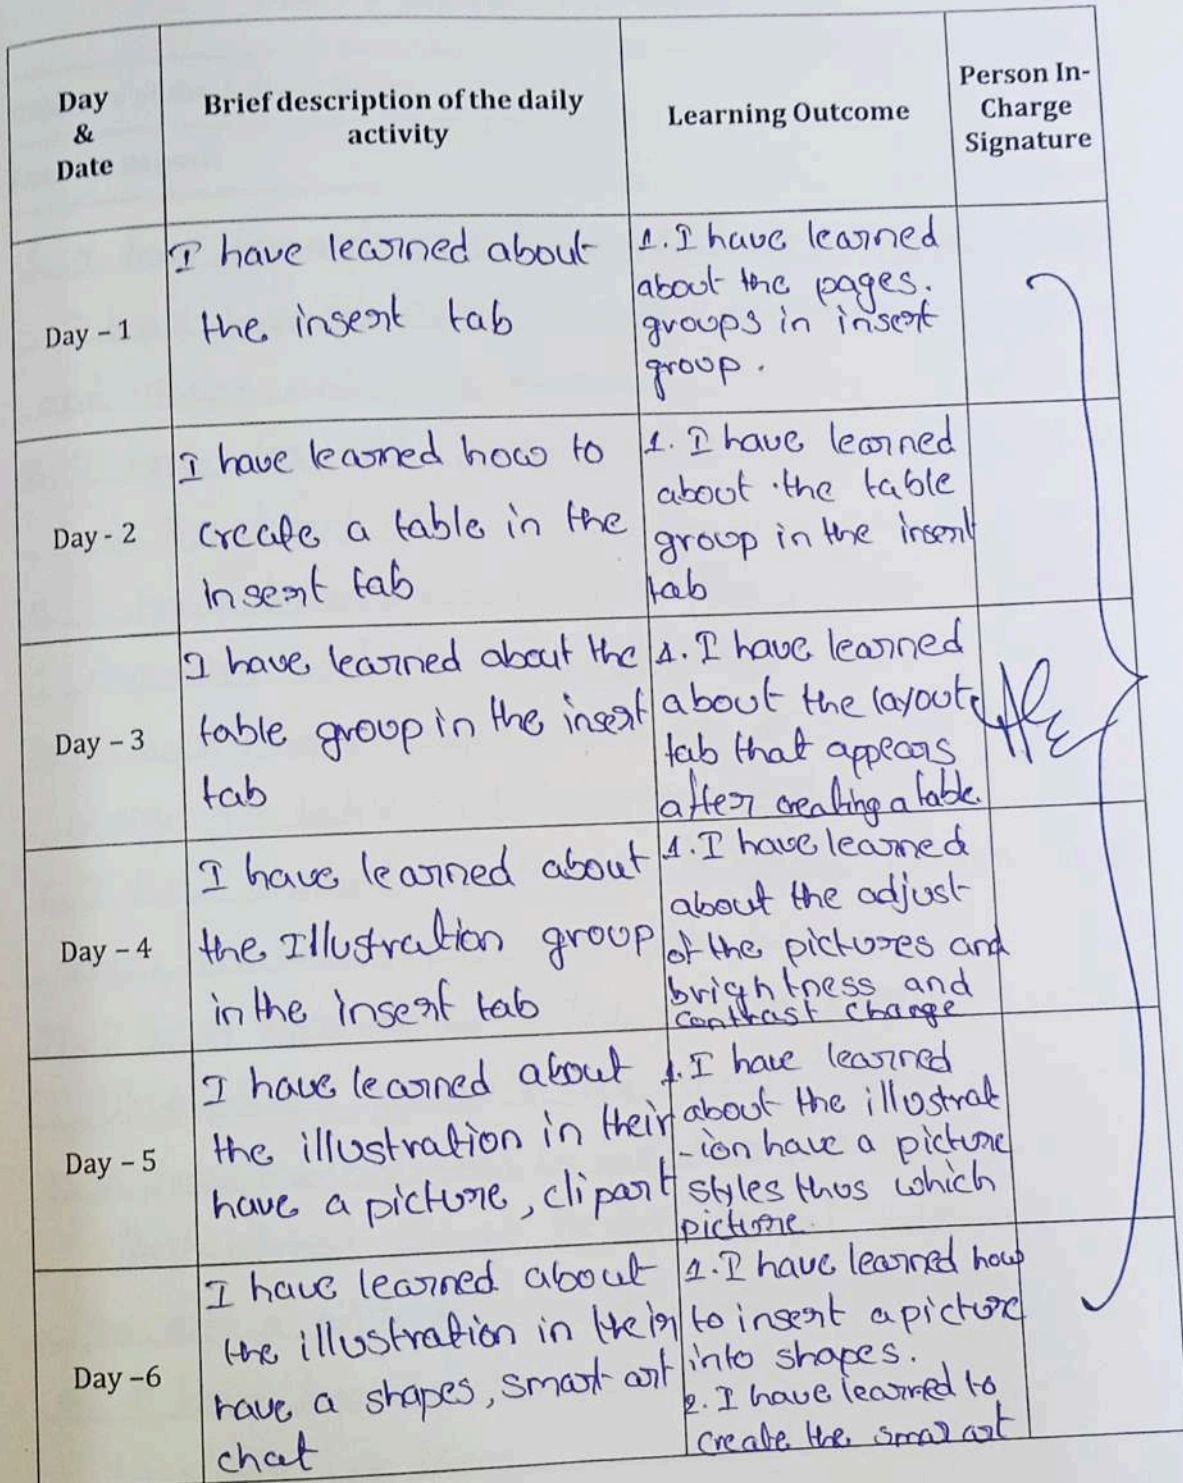 Day
&
Date
Brief description of the daily
activity
Learning Outcome
Person In-
Charge
Signature
Day - 1
I have learned about
the insert tab
1. I have learned
about the pages.
groups in insert
group.
Day - 2
I have learned how to
create a table in the
insert tab
1. I have learned
about the table
group in the insert
tab
Day - 3
I have learned about the
table group in the insert
tab
1. I have learned
about the layout
tab that appears
after creating a table.
Day - 4
I have learned about
the Illustration group
in the insert tab
1. I have learned
about the adjust
of the pictures and
brightness and
contrast change
Day - 5
I have learned about
the illustration in their
have a picture, clipart
1. I have learned
about the illustrat
-ion have a picture
styles thus which
picture.
Day -6
I have learned about
the illustration in their
have a shapes, smart art
chat
1. I have learned how
to insert a picture
into shapes.
2. I have learned to
create the smar art